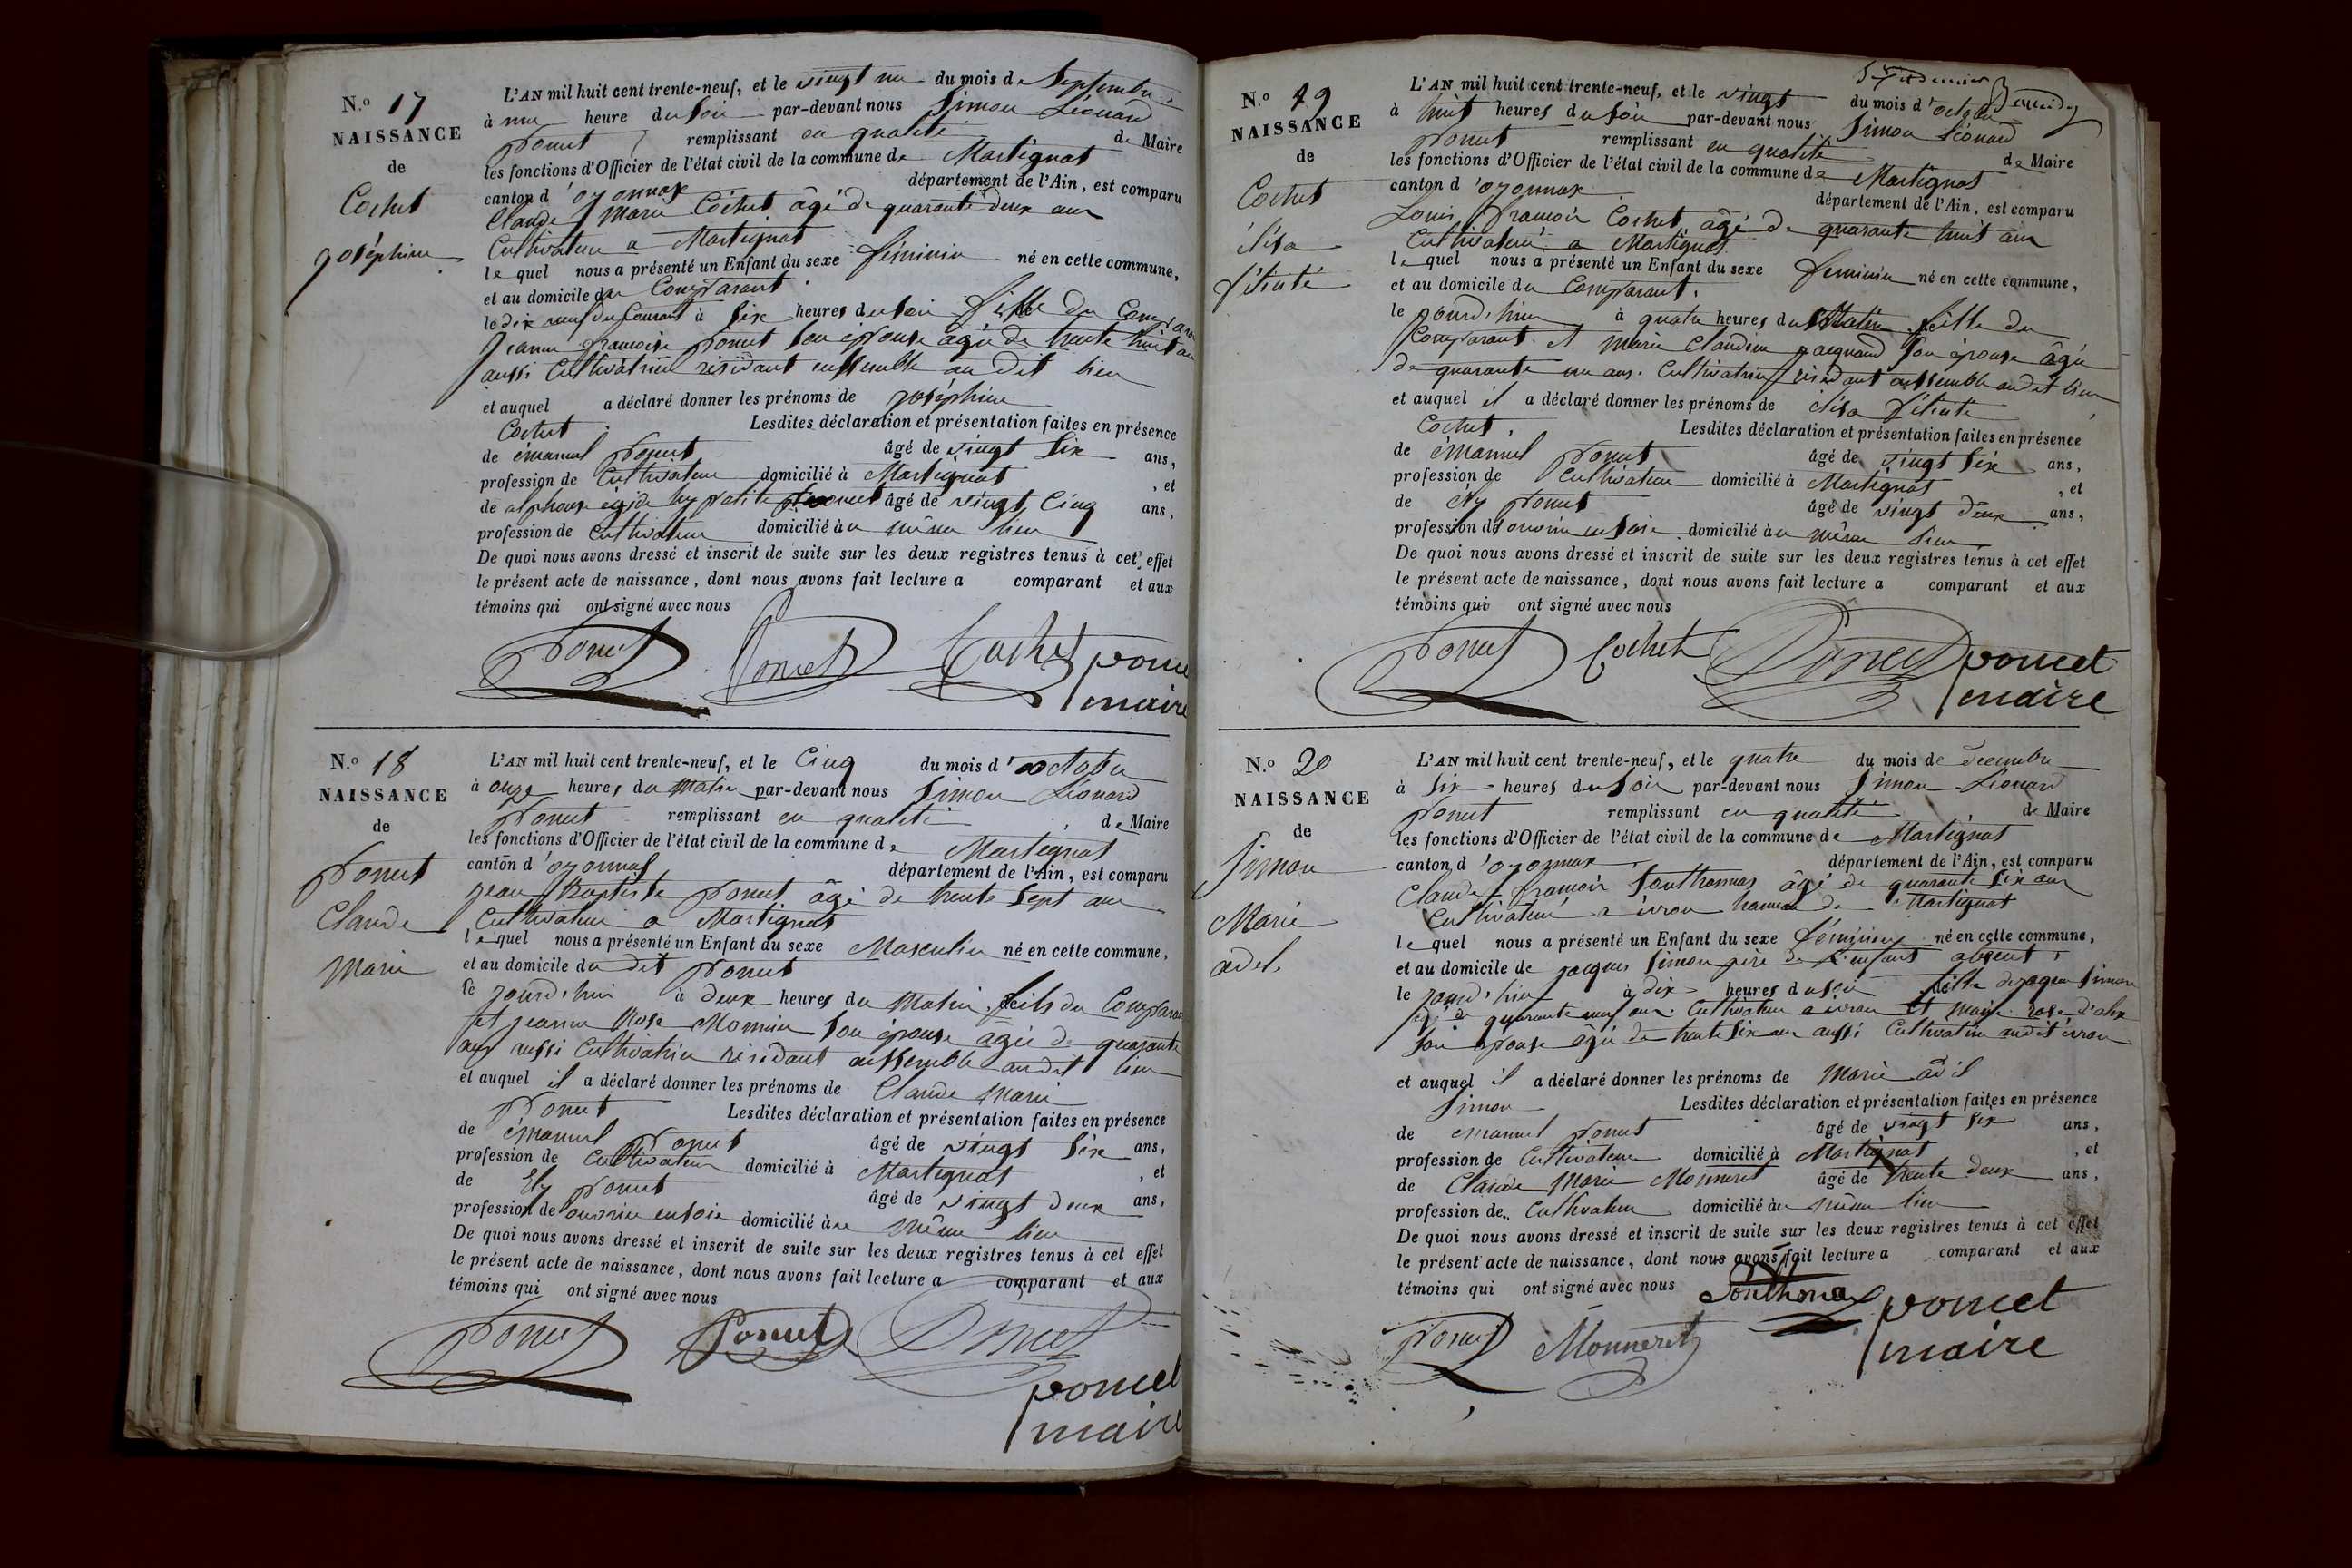 N.o 17
NAISSANCE
de
Cochet
joséphine
L'AN mil huit cent trente-neuf, et le vingt un du mois de Septembre
à une heure du soir par-devant nous Simon Léonard
Poncet remplissant en qualité de Maire
les fonctions d'Officier de l'état civil de la commune de Martignat
canton d'oyonnax département de l'Ain, est comparu
Claude Marie Cochet âgé de quarante deux ans
Cultivateur a Martignat
lequel nous a présenté un Enfant du sexe féminin né en cette commune,
et au domicile du Comparant.
le dix neuf du Courant à six heures du soir fille du Comparant
jeanne françoise Poncet son épouse agée de trente huit ans
aussi Cultivatrice résidant enssemble au dit lieu
et auquel a déclaré donner les prénoms de joséphine
Cochet. Lesdites déclaration et présentation faites en présence
de émanuel Poncet âgé de vingt six ans,
profession de Cultivateur domicilié à Martignat, et
de alphonse égide hypolite Poncet âgé de vingt Cinq ans,
profession de Cultivateur domicilié au même lieu
De quoi nous avons dressé et inscrit de suite sur les deux registres tenus à cet effet
le présent acte de naissance, dont nous avons fait lecture a comparant et aux
témoins qui ont signé avec nous
Poncet Poncet Cochet poncet
maire
N.o 18
NAISSANCE
de
Poncet
Claude
Marie
L'AN mil huit cent trente-neuf, et le Cinq du mois d'octobre
à onze heures du Matin par-devant nous Simon Léonard
Poncet remplissant en qualité de Maire
les fonctions d'Officier de l'état civil de la commune de Martignat
canton d'oyonnax département de l'Ain, est comparu
jean Baptiste Poncet âgé de trente sept ans
Cultivateur a Martignat
lequel nous a présenté un Enfant du sexe Masculin né en cette commune,
et au domicile du dit Poncet
le jourd'hui à deux heures du Matin. fils du Comparant
et jeanne Rose Monnier son épouse âgée de quarante
ans aussi Cultivatrice résidant enssemble audit lieu
et auquel il a déclaré donner les prénoms de Claude Marie
Poncet Lesdites déclaration et présentation faites en présence
de émanuel Poncet âgé de vingt six ans,
profession de Cultivateur domicilié à Martignat, et
de Ely Poncet âgé de vingt deux ans,
profession de ouvrier en soie domicilié au même lieu
De quoi nous avons dressé et inscrit de suite sur les deux registres tenus à cet effet
le présent acte de naissance, dont nous avons fait lecture a comparant et aux
témoins qui ont signé avec nous
Poncet Poncet Poncet
poncet
maire
N.o 19
NAISSANCE
de
Cochet
élisa
félicité
L'AN mil huit cent trente-neuf, et le vingt du mois d'octobre
à huit heures du soir par-devant nous Simon Léonard
Poncet remplissant en qualité de Maire
les fonctions d'Officier de l'état civil de la commune de Martignat
canton d'oyonnax département de l'Ain, est comparu
Louis françois Cochet, âgé de quarante huit ans
Cultivateur a Martignat
lequel nous a présenté un Enfant du sexe feminin né en cette commune,
et au domicile du Comparant.
le jourd'hui à quatre heures du Matin fille du
Comparant et Marie Claudine son épouse âgée
de quarante un ans. Cultivatrice résidant enssemble audit lieu
et auquel il a déclaré donner les prénoms de élisa félicité
Cochet. Lesdites déclaration et présentation faites en présence
de émanuel Poncet âgé de vingt six ans,
profession de Cultivateur domicilié à Martignat, et
de Ely Poncet âgé de vingt deux ans,
profession de ouvrier en soie domicilié au même lieu
De quoi nous avons dressé et inscrit de suite sur les deux registres tenus à cet effet
le présent acte de naissance, dont nous avons fait lecture a comparant et aux
témoins qui ont signé avec nous
Poncet Cochet Poncet poncet
maire
N.o 20
NAISSANCE
de
Simon
Marie
adel.
L'AN mil huit cent trente-neuf, et le quatre du mois de decembre
à six heures du soir par-devant nous Simon Léonard
Poncet remplissant en qualité de Maire
les fonctions d'Officier de l'état civil de la commune de Martignat
canton d'oyonnax département de l'Ain, est comparu
Claude françois Sonthonnax âgé de quarante six ans
Cultivateur a évron hameau de Martignat
lequel nous a présenté un Enfant du sexe féminin né en cette commune,
et au domicile de jacques Simon père de l'enfant absent,
le jourd'hui à dix heures du soir fille de jaques Simon
âgé de quarante neuf ans. Cultivateur a évron et Marie rose
son épouse âgée de trente six ans aussi Cultivatrice audit évron
et auquel il a déclaré donner les prénoms de Marie adel
Simon Lesdites déclaration et présentation faites en présence
de émanuel Poncet âgé de vingt six ans,
profession de Cultivateur domicilié à Martignat, et
de Claude Marie Monneret âgé de trente deux ans,
profession de Cultivateur domicilié au même lieu
De quoi nous avons dressé et inscrit de suite sur les deux registres tenus à cet effet
le présent acte de naissance, dont nous avons fait lecture a comparant et aux
témoins qui ont signé avec nous Sonthonax poncet
Poncet Monneret maire